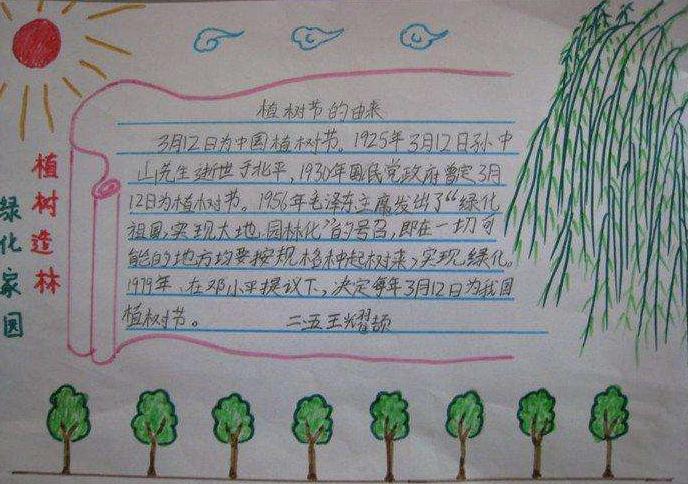 植树节的由来
3月12日为中国植树节。1925年3月12日孙中
山先生逝世于北平，1930年国民党政府曾定3月
12日为植树节。1956年毛泽东主席发出了“绿化
祖国，实现大地园林化”的号召，即在一切可
能的地方均要按规格种起树来，实现绿化。
1979年，在邓小平提议下，决定每年3月12日为我国
植树节。
二五王耀颉
植树造林
绿化家园